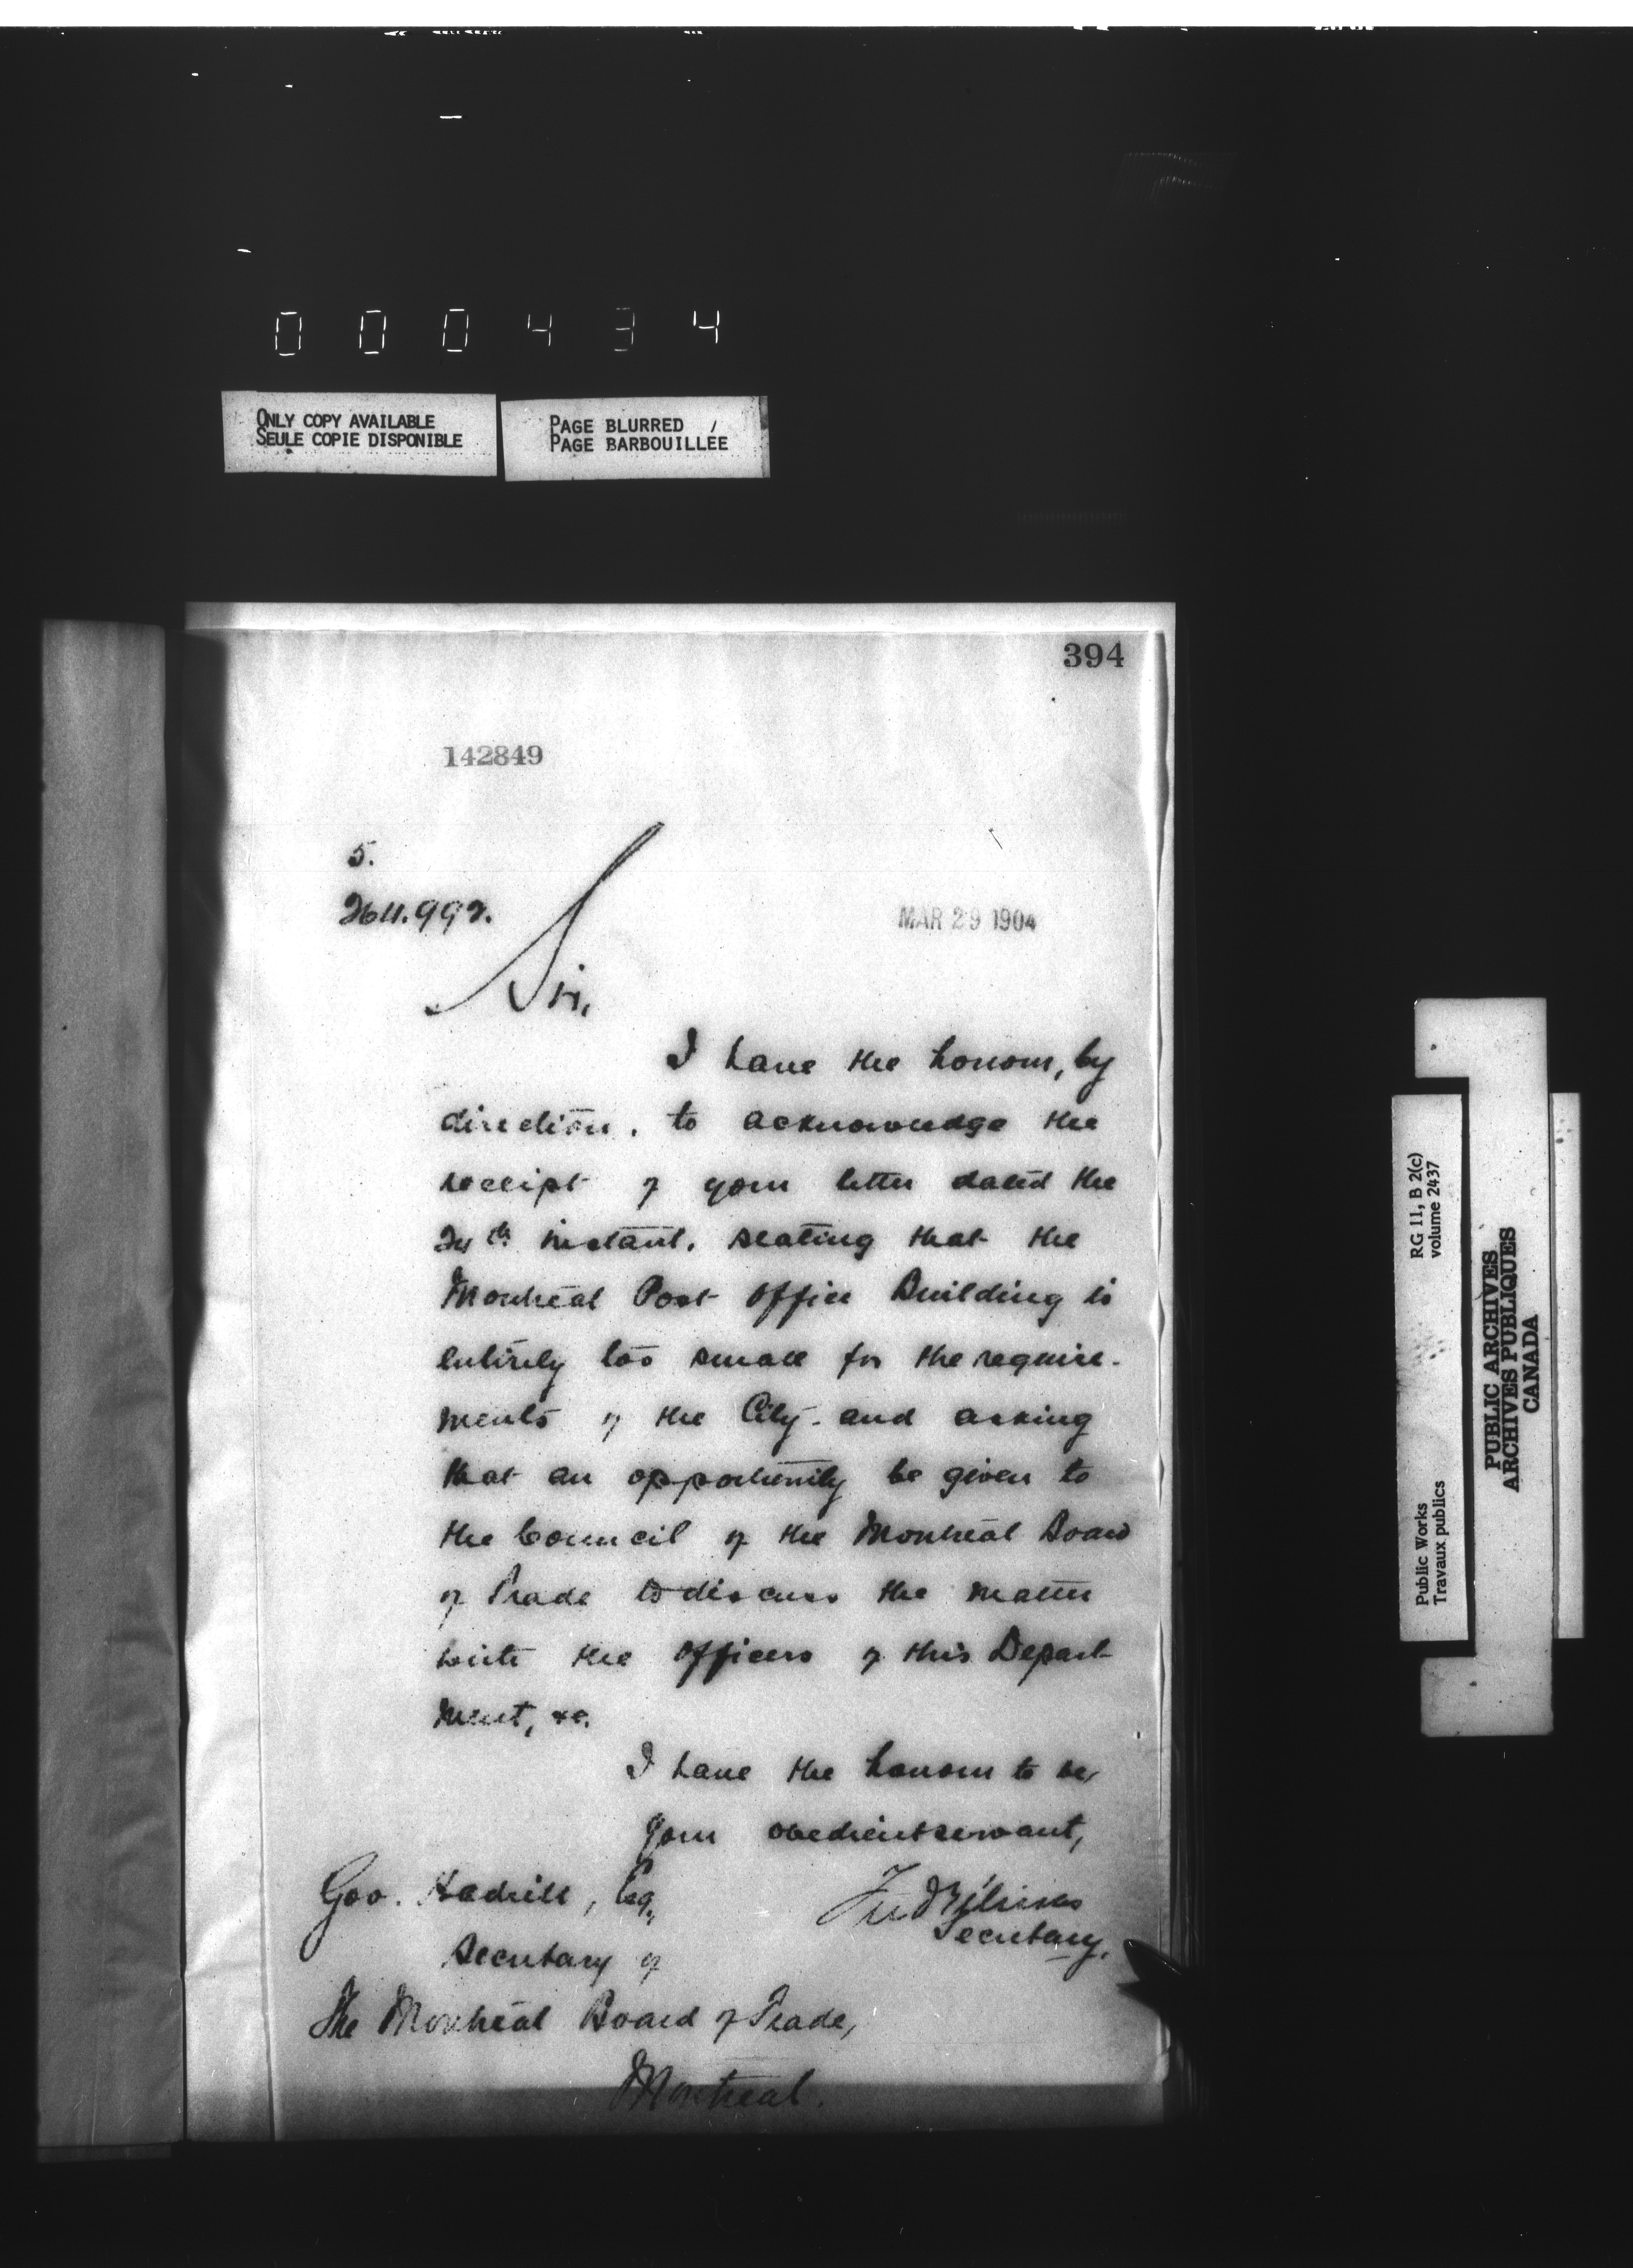 000434
ONLY COPY AVAILABLE
SEULE COPIE DISPONIBLE
PAGE BLURRED /
PAGE BARBOUILLEE
394
142849
5.
264.992.
MAR 29 1904
Sir,
I have the honour, by
direction, to acknowledge the
receipt of your letter dated the
24th instant, stating that the
Montreal Post Office Building is
entirely too small for the require-
ments of the City - and asking
that an opportunity be given to
the Council of the Montreal Board
of Trade to discuss the matter
with the Officers of this Depart-
ment, &c.
I have the honour to be,
your obedient servant,
Fred Gélinas
Secretary.
Geo. Hadrill, Esq.,
Secretary of
The Montreal Board of Trade,
Montreal.
RG 11, B 2(c)
volume 2437
Public Works
Travaux publics
PUBLIC ARCHIVES
ARCHIVES PUBLIQUES
CANADA